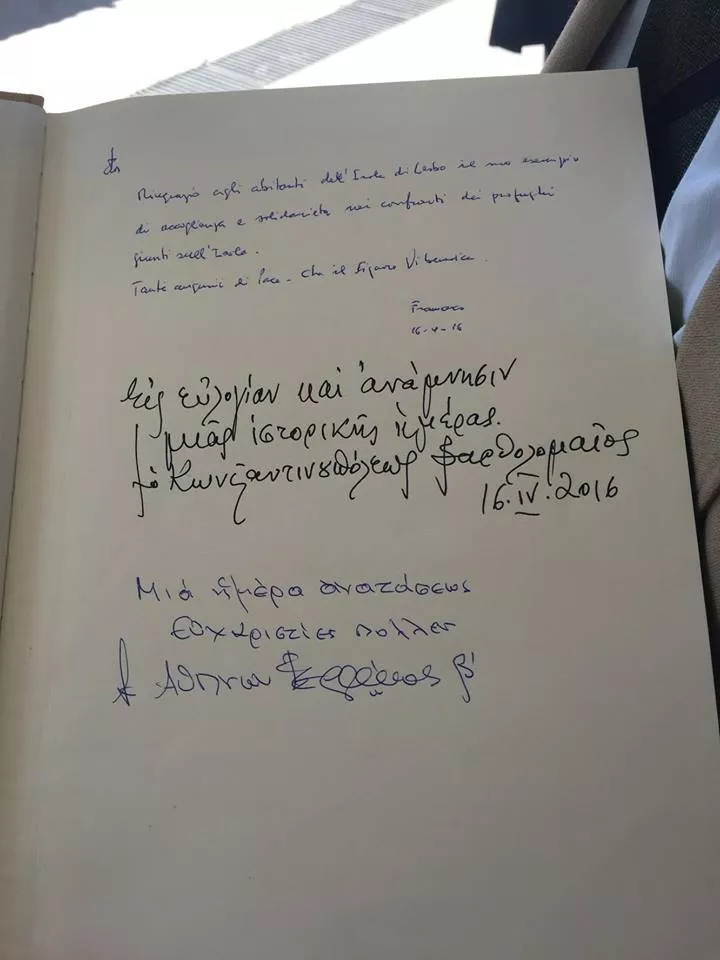 Ringrazio agli abitanti dell'Isola di Lesbo il suo esempio
di accoglienza e solidarietà nei confronti dei profughi
giunti sull'Isola.
Tanti auguri di Pace. Che il Signore Vi benedica.
Francesco
16-4-16
Εἰς εὐλογίαν καὶ ἀνάμνησιν
μιᾶς ἱστορικῆς ἡμέρας.
ὁ Κωνσταντινουπόλεως Βαρθολομαῖος
16.IV.2016
Μιά ἡμέρα ανατάσεως
Ευχαριστίες πολλές
Αθηνων Ιερώνυμος β'